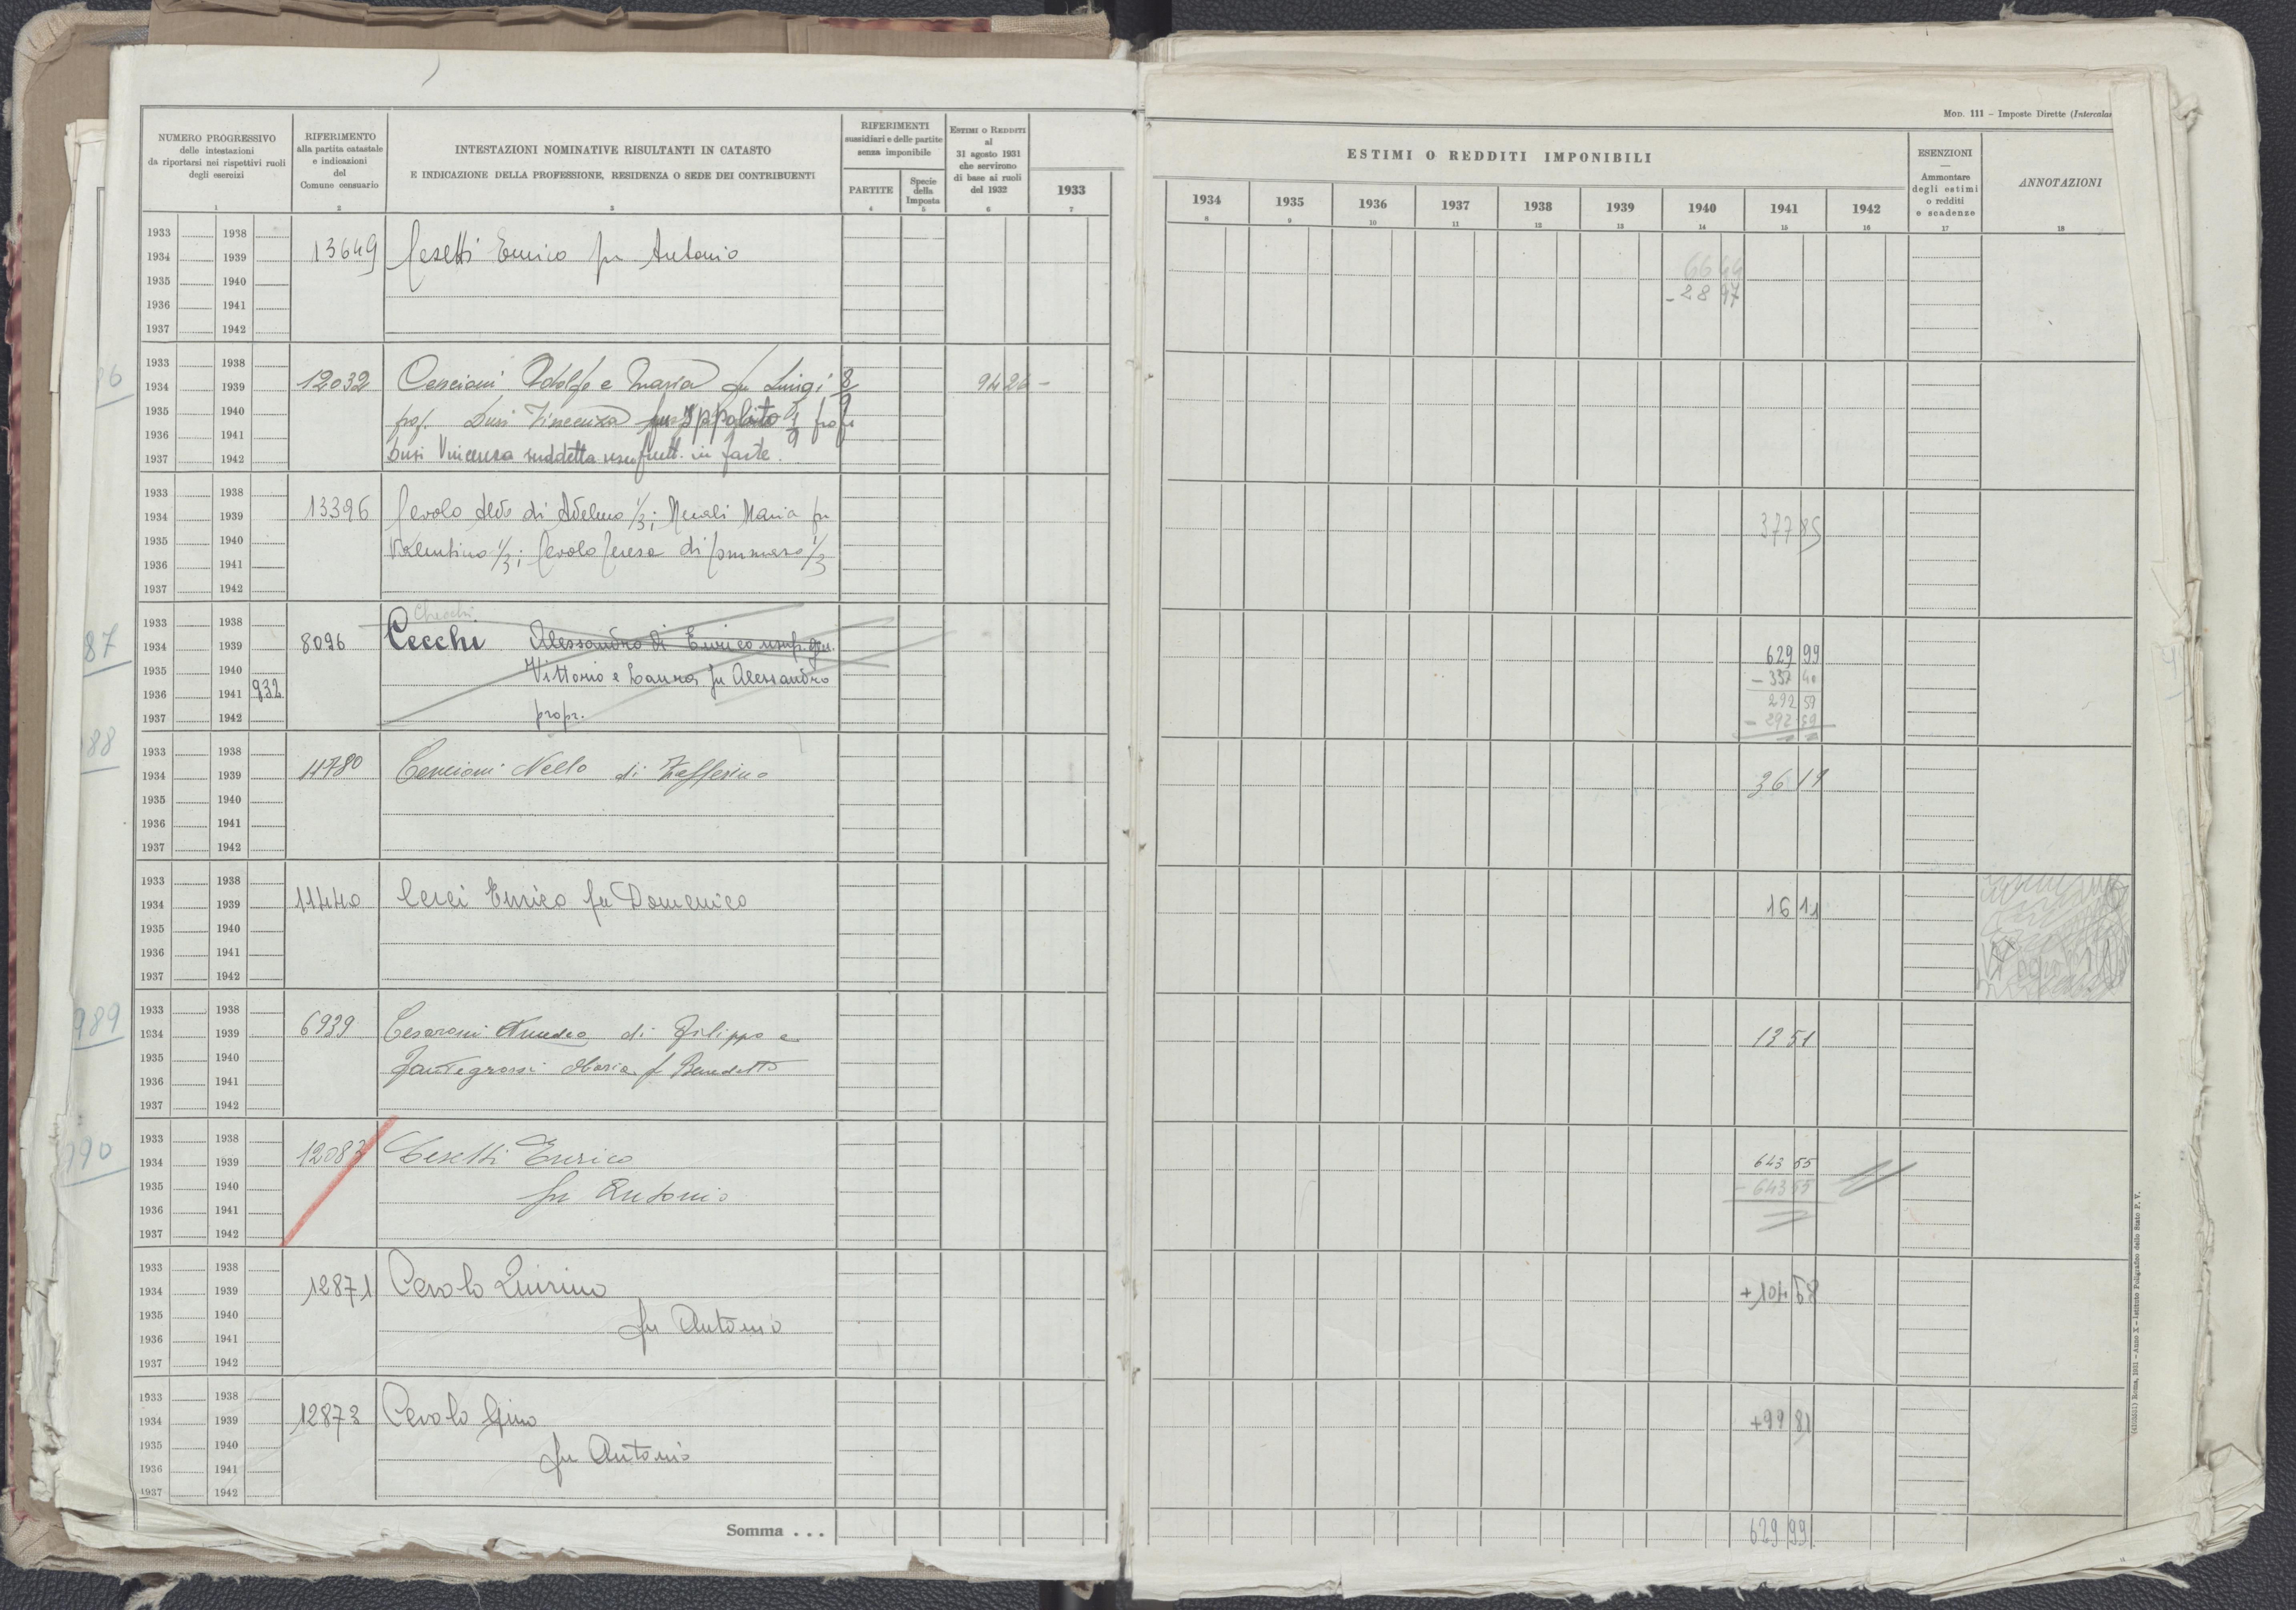 MOD. 111 – Imposte Dirette (Intercalar
NUMERO PROGRESSIVO
delle intestazioni
da riportarsi nei rispettivi ruoli
degli esercizi
1
RIFERIMENTO
alla partita catastale
e indicazioni
del
Comune censuario
2
INTESTAZIONI NOMINATIVE RISULTANTI IN CATASTO
E INDICAZIONE DELLA PROFESSIONE, RESIDENZA O SEDE DEI CONTRIBUENTI
3
RIFERIMENTI
sussidiari e delle partite
senza imponibile
PARTITE
4
Specie
della
Imposta
5
ESTIMI O REDDITI
al
31 agosto 1931
che servirono
di base ai ruoli
del 1932
6
1933
7
ESTIMI O REDDITI IMPONIBILI
1934 1935 1936 1937 1938 1939 1940 1941 1942
8 9 10 11 12 13 14 15 16
ESENZIONI
—
Ammontare
degli estimi
o redditi
e scadenze
17
ANNOTAZIONI
18
1933 1938
1934 1939 13649 Cesetti Enrico fu Antonio 66 44
1935 1940 - 28 97
1936 1941
1937 1942
1933 1938
1934 1939 12032 Cencioni Adolfo e Maria fu Luigi 94 26 -
1935 1940 prop. Dusi Vincenza fu Ippolito
1936 1941
1937 1942 Dusi Vincenza suddetta usufrutt. in parte.
1933 1938
1934 1939 13396 Cevolo Aldo di Adelmo 1/3; Menali Maria fu 377 85
1935 1940 Valentino 1/3; Cevolo Teresa di Tommaso 1/3
1936 1941
1937 1942
87
1933 1938 Checchi
1934 1939 8096 Cecchi Alessandro di Enrico usuf. gen. 629 99
1935 1940 Vittorio e Laura fu Alessandro - 337 40
1936 1941 932 292 59
1937 1942 propr. - 292 59
88
1933 1938
1934 1939 11780 Cencioni Nello di Zefferino 36 19
1935 1940
1936 1941
1937 1942
1933 1938
1934 1939 11440 Cerci Enrico fu Domenico 16 11
1935 1940
1936 1941
1937 1942
989
1933 1938
1934 1939 6939 Cesaroni Amedeo di Filippo e 12 51
1935 1940 Fantegrossi Maria f Benedetto
1936 1941
1937 1942
990
1933 1938
1934 1939 12083 Cesetti Enrico 643 55
1935 1940 fu Antonio - 643 55
1936 1941
1937 1942
1933 1938
1934 1939 12871 Cevolo Quirino + 104 58
1935 1940
1936 1941 fu Antonio
1937 1942
1933 1938
1934 1939 12873 Cevolo Gino + 99 81
1935 1940 fu Antonio
1936 1941
1937 1942
Somma . . . 629 99
Roma, 1931 – Anno X – Istituto Poligrafico dello Stato P. V.